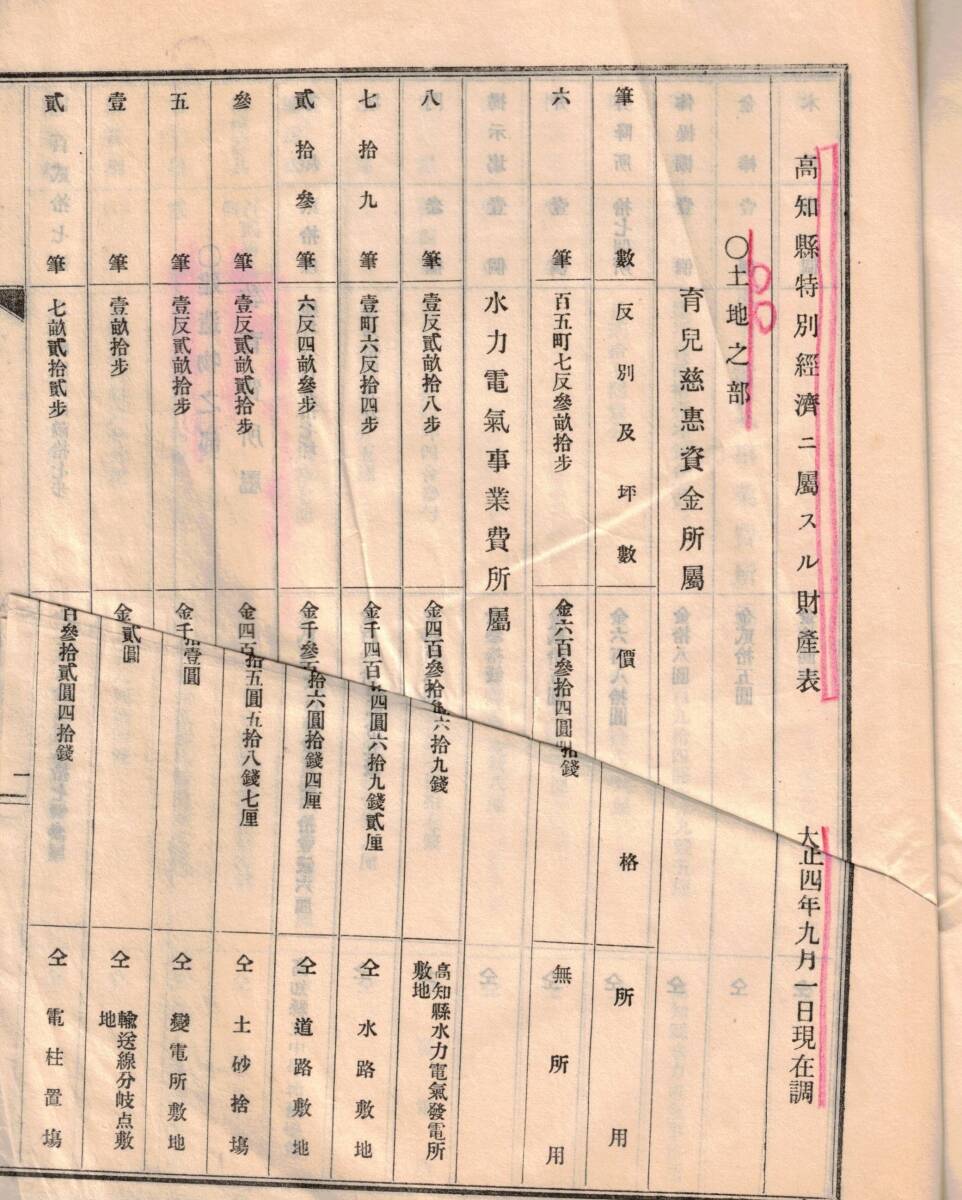 高知縣特別經濟ニ屬スル財產表
大正四年九月一日現在調
〇土地之部
育兒慈惠資金所屬
筆數 反別及坪數 價格 所用
六筆 百五町七反參畝拾步 金六百參拾四圓拾錢 無所用
水力電氣事業費所屬
八筆 壹反貳畝拾八步 金四百參拾 六拾九錢 高知縣水力電氣發電所敷地
七拾九筆 壹町六反拾四步 金千四百 四圓六拾九錢貳厘 仝 水路敷地
貳拾參筆 六反四畝參步 金千參百 拾六圓拾錢四厘 仝 道路敷地
參筆 壹反貳畝貳拾步 金四百 拾五圓五拾八錢七厘 仝 土砂捨塲
五筆 壹反貳畝拾步 金千 壹圓 仝 變電所敷地
壹筆 壹畝拾步 金貳圓 仝 輸送線分岐点敷地
貳筆 七畝貳拾貳步 百參拾貳圓四拾錢 仝 電柱置塲
一